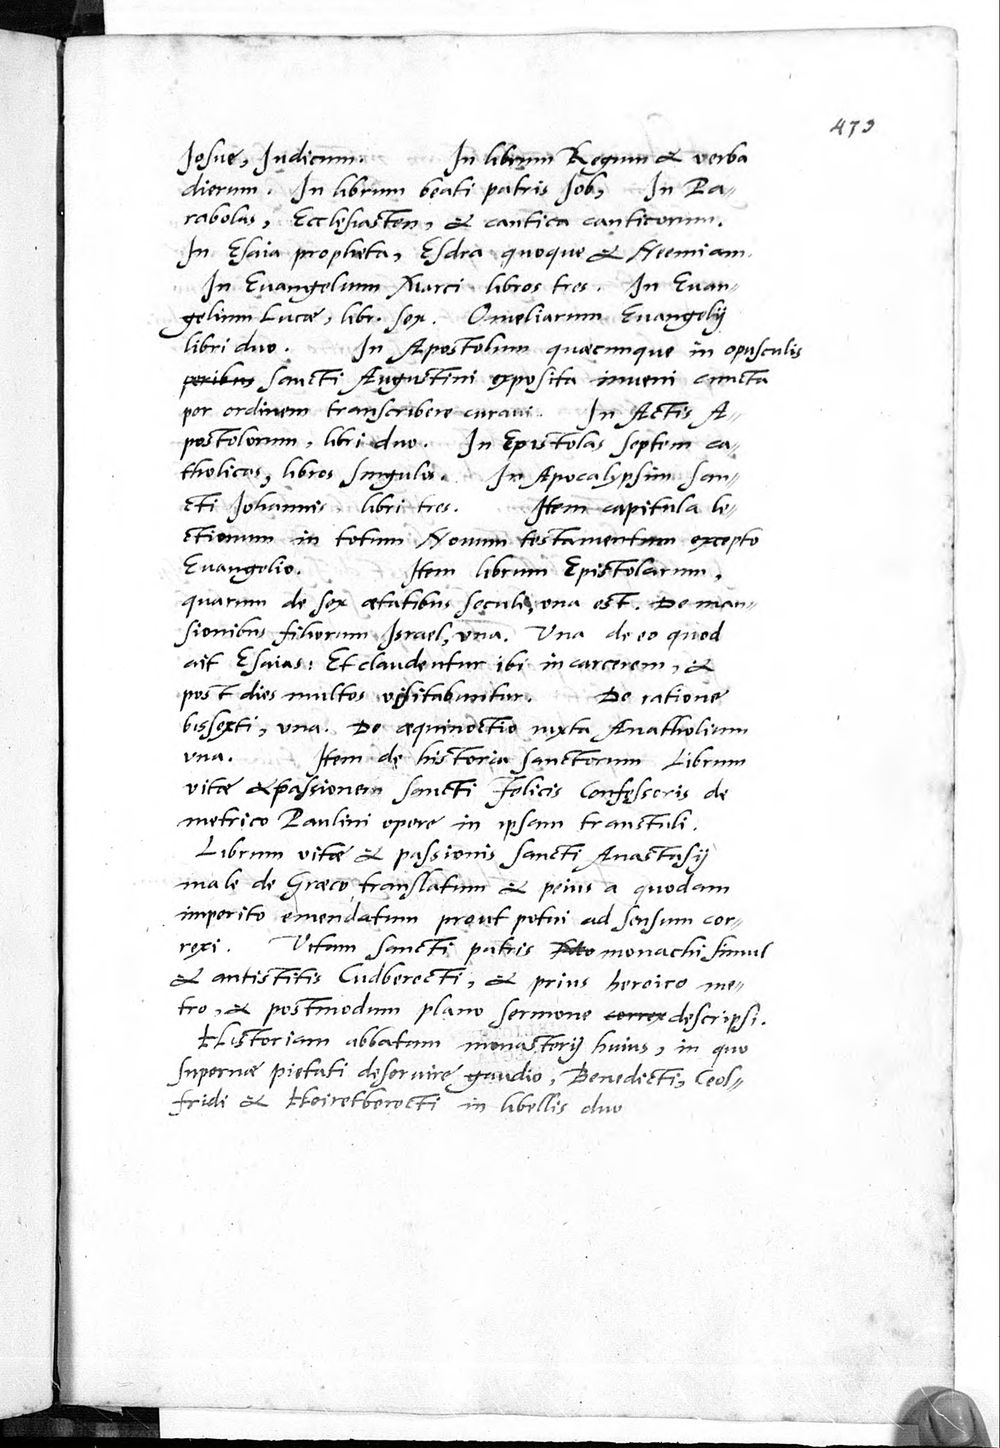 473
Iosue, Iudicum. In librum Regum & verba
dierum. In librum beati patris Iob, In Pa-
rabolas, Ecclesiasten, & cantica canticorum.
In Esaia propheta, Esdra quoque & Neemiam.
In Euangelium Marci libros tres. In Euan-
gelium Lucæ, libr. sex. Omeliarum Euangelij
libri duo. In Apostolum quæcunque in opusculis
sancti Augustini exposita inueni cuncta
per ordinem transcribere curaui. In Actis A-
postolorum, libri duo. In Epistolas septem ca-
tholicas, libros singulos. In Apocalypsim san-
cti Iohannis libri tres. Item capitula le-
ctionum in totum Nouum testamentum excepto
Euangelio. Item librum Epistolarum,
quarum de sex ætatibus seculi, vna est. De man-
sionibus filiorum Israel, vna. Vna de eo quod
ait Esaias: Et claudentur ibi in carcerem, &
post dies multos visitabuntur. De ratione
bissexti, vna. De æquinoctio iuxta Anatholium
vna. Item de historia sanctorum Librum
vitæ & passionem sancti Felicis Confessoris de
metrico Paulini opere in ipsam transtuli.
Librum vitæ & passionis sancti Anastasij
male de Græco translatum & peius a quodam
imperito emendatum prout potui ad sensum cor-
rexi. Vitam sancti patris monachi simul
& antistitis Cudberecti, & prius heroico me-
tro, & postmodum plano sermone correx descripsi.
Historiam abbatum monasterij huius, in quo
supernæ pietati deseruire gaudio, Benedicti, Ceol-
fridi & Hoiretberecti in libellis duo